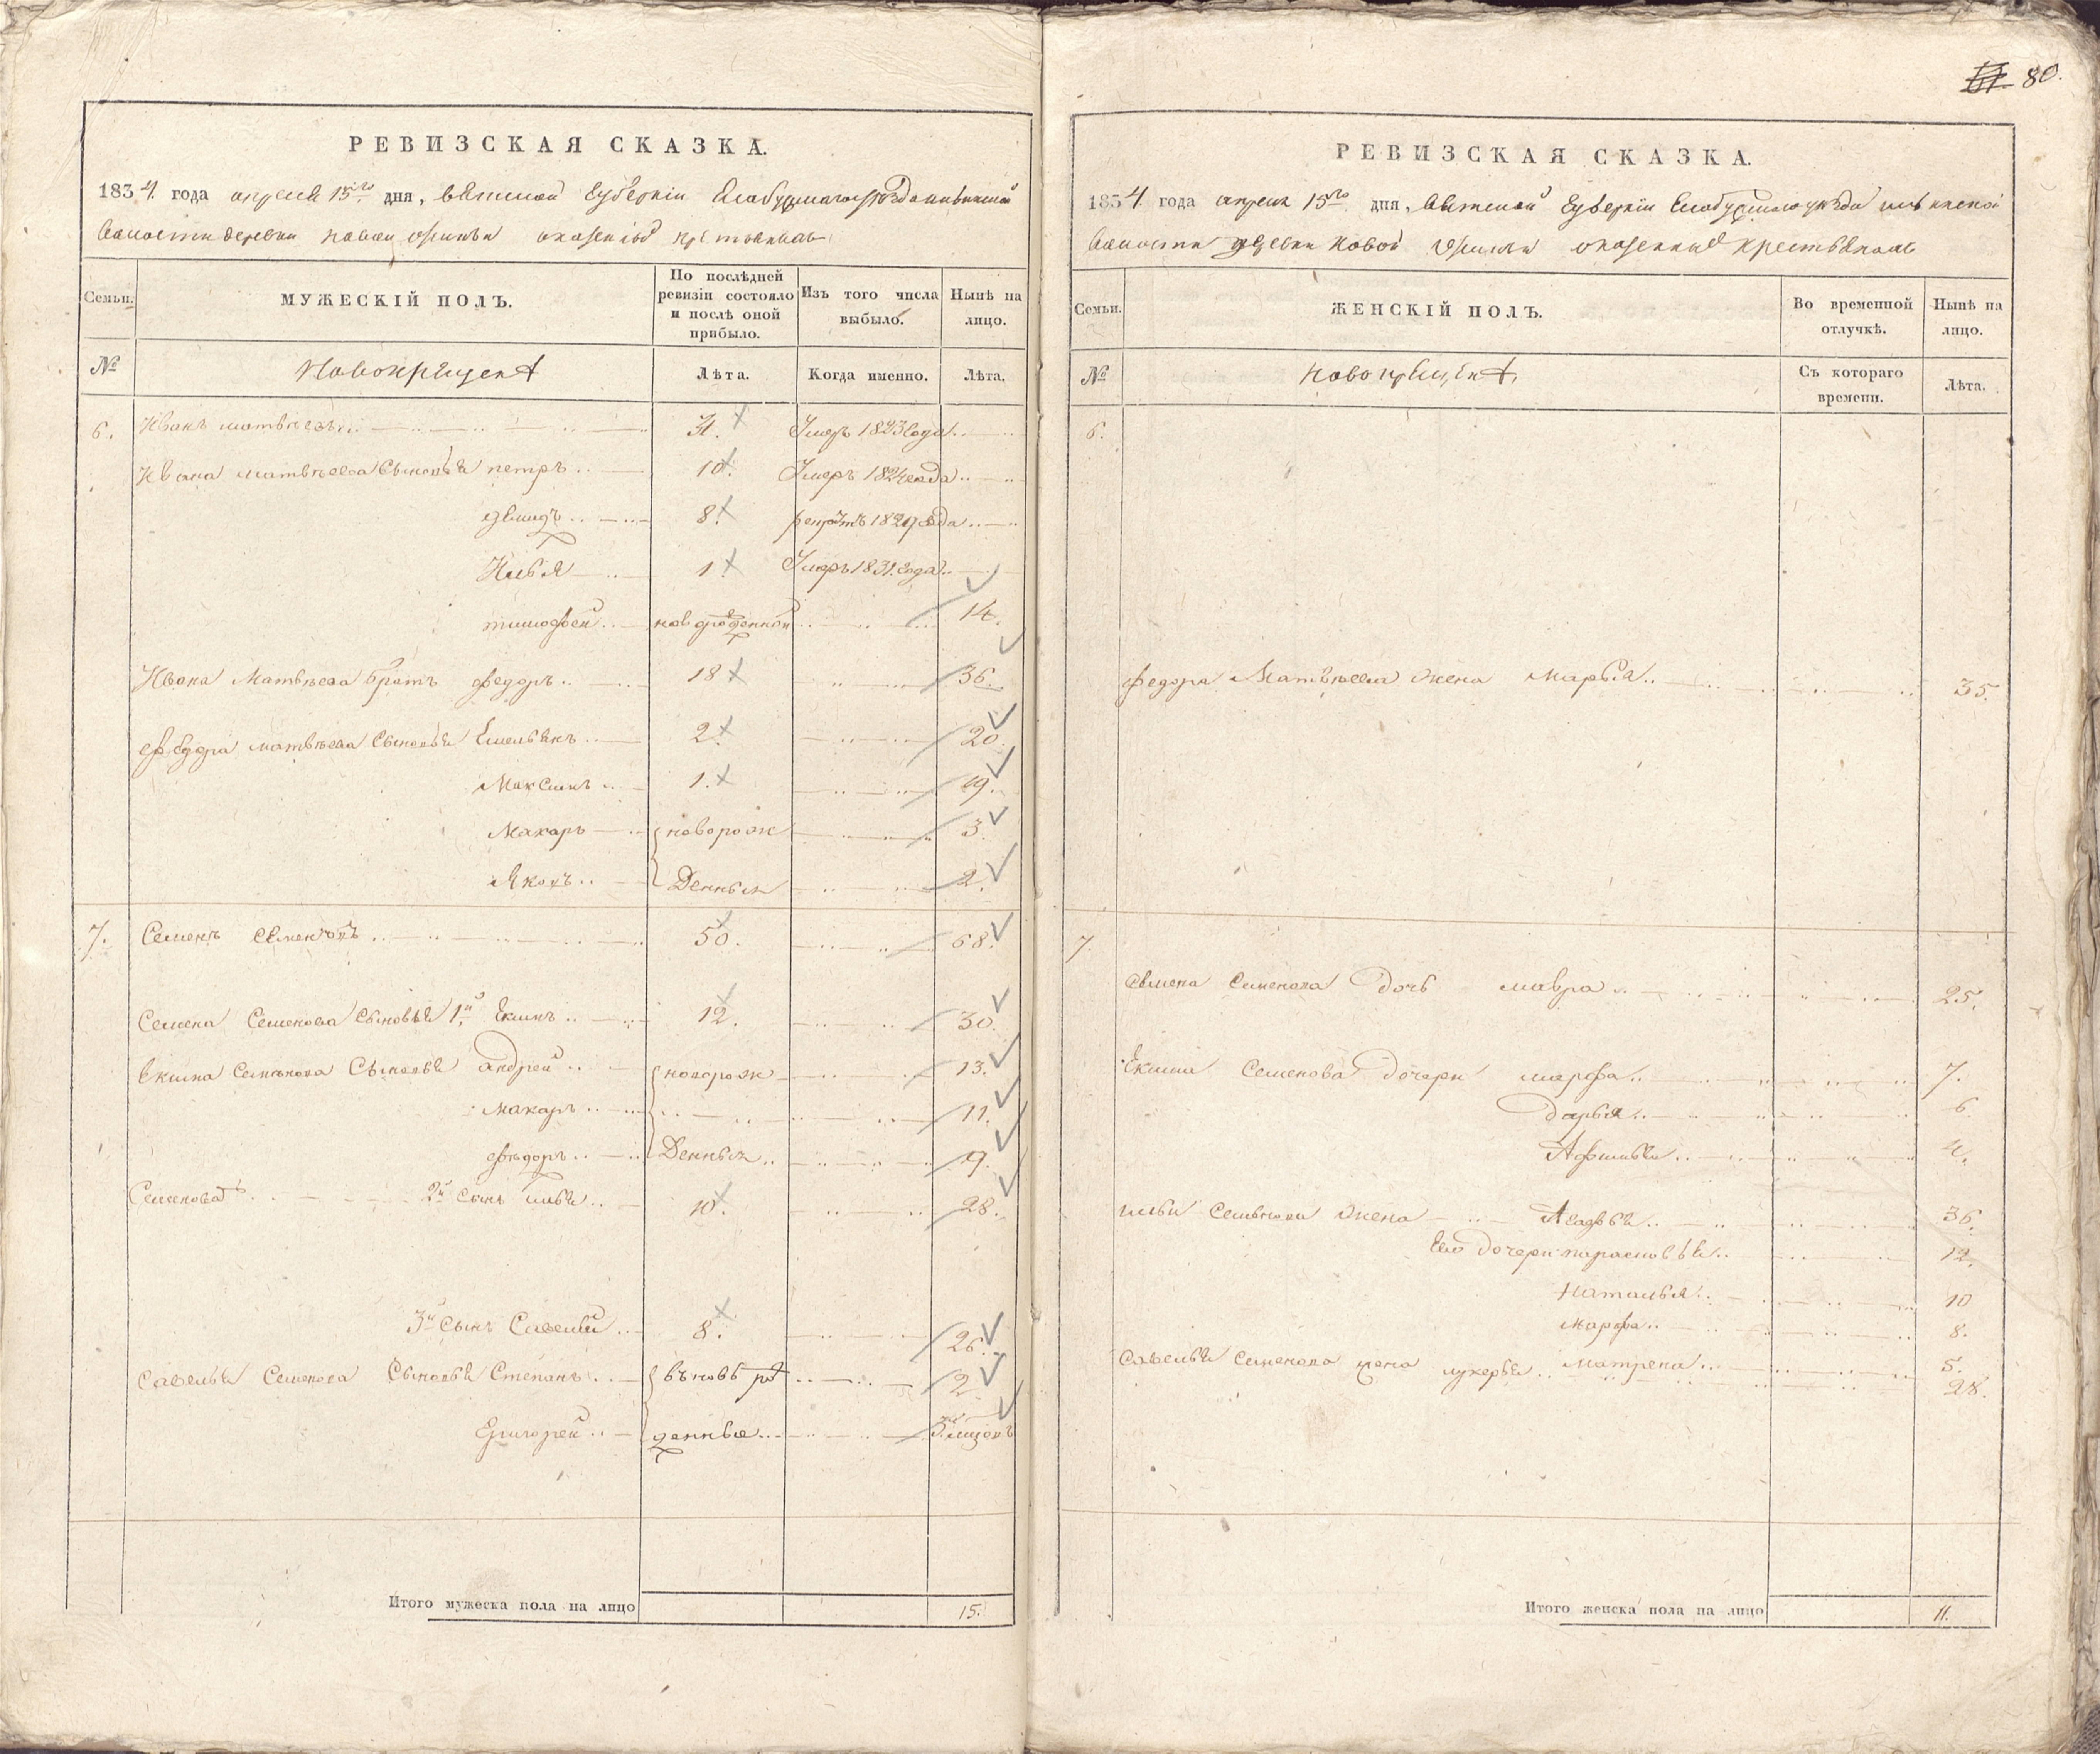 80.
РЕВИЗСКАЯ СКАЗКА.
1834 года апреля 15го дня, вятской губернiи Елабужскаго уезда
волости деревни новой крестьянахъ
Семьи. МУЖЕСКІЙ ПОЛЪ. По послѣдней ревизіи состояло и послѣ оной прибыло. Изъ того числа выбыло. Нынѣ на лицо.
№ Новокрещена Лѣта. Когда именно. Лѣта.
6. Иванъ матвѣевъ 31. Умеръ 1823 года
Ивана матвѣева сыновья петръ 10. Умеръ 1824 года
8. 1829 года
Илья 1. Умеръ 1831 года
тимофей новорожденной 14.
Ивана Матвѣева братъ федоръ 18 36.
федора матвѣева сыновья Емельянъ 2. 20.
Максимъ 1. 19.
Макаръ новорож 3.
Яковъ денныя 2.
7. Семенъ Семеновъ 50. 68.
Семена Семенова сыновья 1й Екимъ 12. 30.
Екима Семенова сыновья андрей новорож 13.
макаръ 11.
федоръ денныя 9.
Семенова 2й сынъ илья 10. 28.
3й сынъ Савелий 8. 26.
Савелья Семенова сыновья Степанъ вновь ро 2
Григорей денныя
Итого мужеска пола на лицо 15.
РЕВИЗСКАЯ СКАЗКА.
1834 года апреля 15го дня, вятской губернiи Елабужскаго уезда
волости деревни новой крестьянахъ
Семьи. ЖЕНСКІЙ ПОЛЪ. Во временной отлучкѣ. Нынѣ на лицо.
№ новокрещена Съ котораго времени. Лѣта.
6.
федора Матвѣева жена марья 35.
7.
семена семенова дочь мавра 25.
Екима Семенова дочери марфа 7.
дарья 6
4.
ильи семенова жена 36.
Его дочери парасковья 12.
наталья 10
марфа 8.
матрена 5.
Савелья семенова жена лукерья 28.
Итого женска пола на лицо 11.